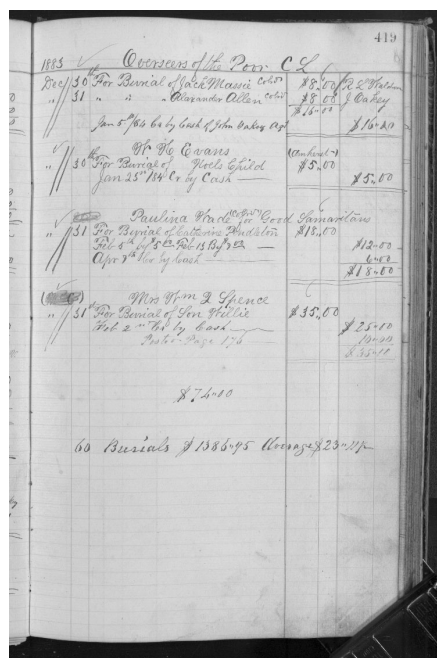 419
1883 Overseers of the Poor C L
Dec 30th For Burial of Jack Massie Cold $8.00 R L
" 31 " " " Alexander Allen Cold $8.00 J Oakey
$16.00
Jan 5th/84 Cr by Cash of John Oakey Agt $16.00
W H Evans (Amherst)
" 30th For Burial of Child $5.00
Jan 25th 184 Cr by Cash $5.00
Paulina Wade for Good Samaritans
" 31 For Burial of Catherine Pendleton $18.00
Feb 5th by $5 Feb 13 By $12.00
Apr 8th Cr by Cash 6.00
$18.00
Mrs Wm L Spence
" 31st For Burial of Son Willie $35.00
Feb 2nd Cr by Cash $25.00
Posted Page 176 10.00
$35.00
$74.00
60 Burials $1386.95 Average $23.11